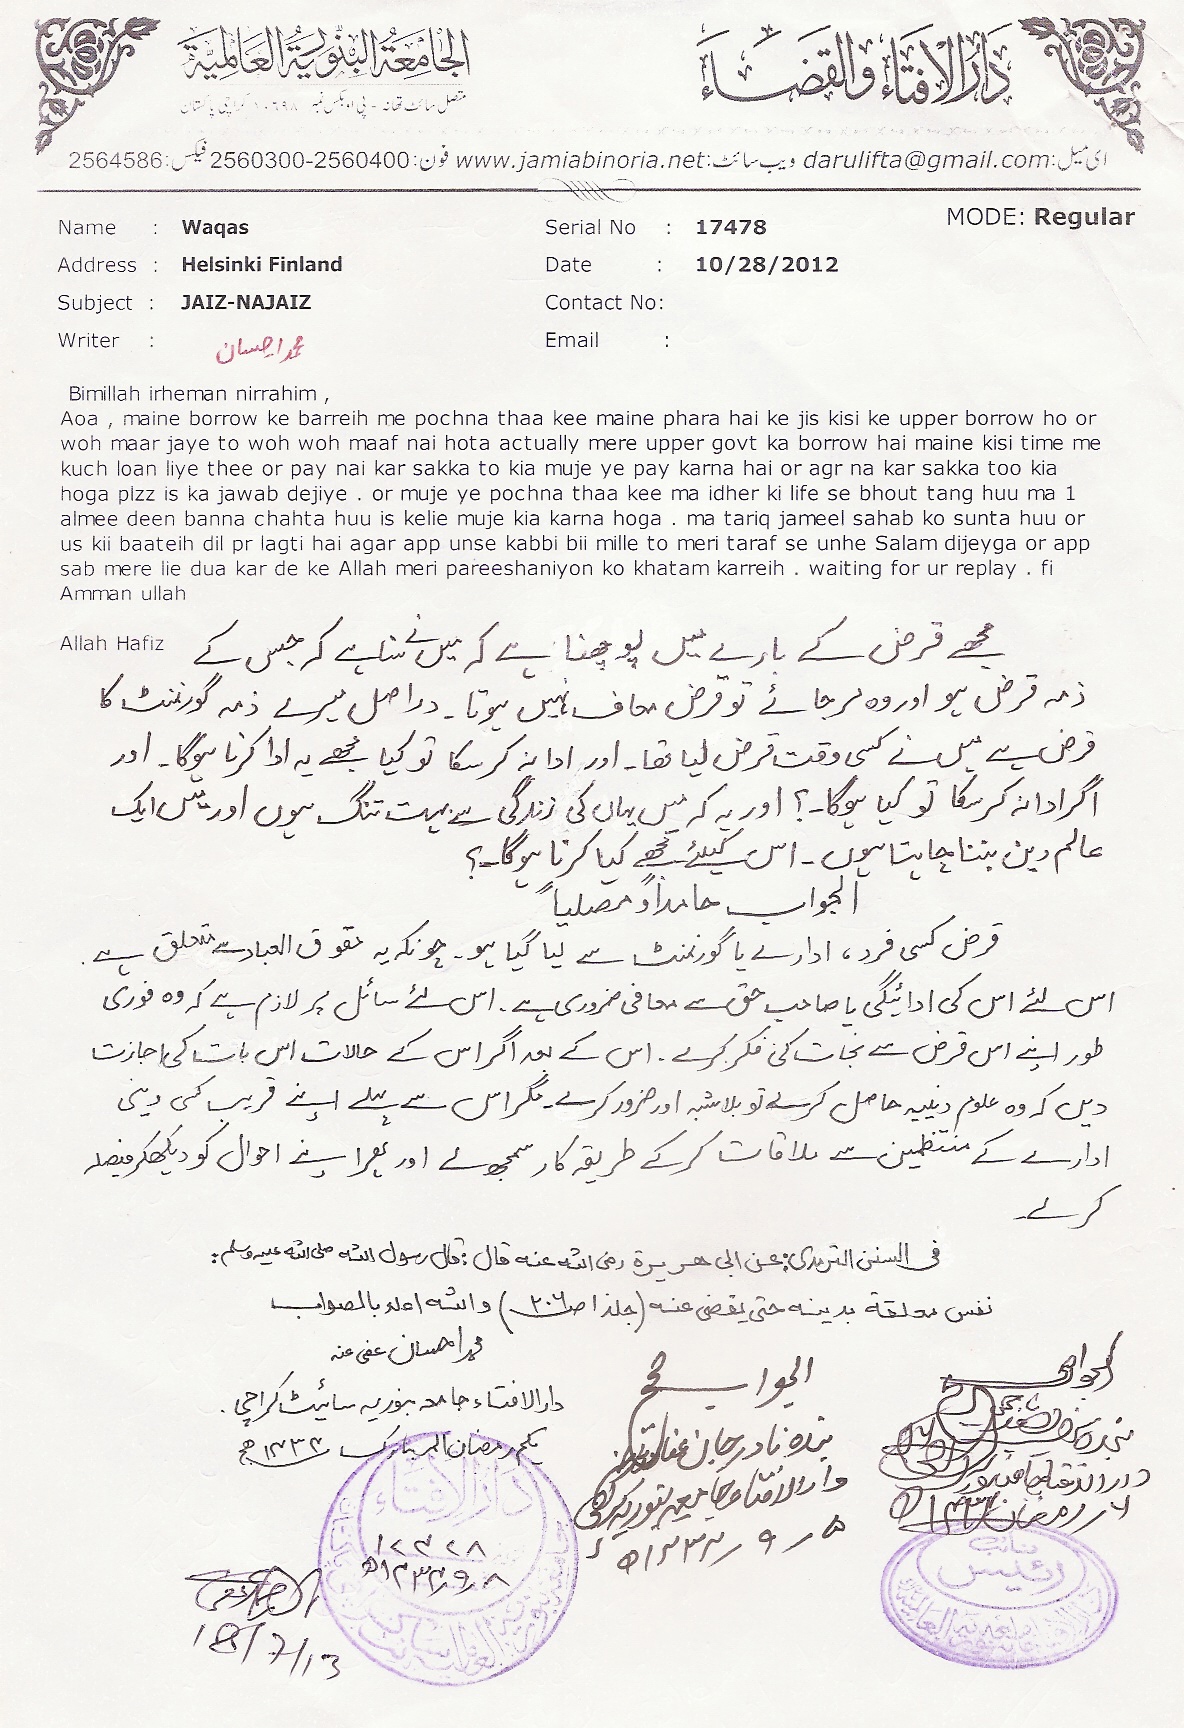 دَارُالافتَاء والقضَاء
الجَامعَةُ البنُوريَّةُ العَالميَّة
متصل سائٹ تھانہ - پی او بکس نمبر ۱۰۶۹۸ کراچی پاکستان
ای میل: darulifta@gmail.com ویب سائٹ: www.jamiabinoria.net فون: 2560300-2560400 فیکس: 2564586
MODE: Regular
Name : Waqas Serial No : 17478
Address : Helsinki Finland Date : 10/28/2012
Subject : JAIZ-NAJAIZ Contact No:
Writer : محمد احسان Email :
Bimillah irheman nirrahim ,
Aoa , maine borrow ke barreih me pochna thaa kee maine phara hai ke jis kisi ke upper borrow ho or
woh maar jaye to woh woh maaf nai hota actually mere upper govt ka borrow hai maine kisi time me
kuch loan liye thee or pay nai kar sakka to kia muje ye pay karna hai or agr na kar sakka too kia
hoga plzz is ka jawab dejiye . or muje ye pochna thaa kee ma idher ki life se bhout tang huu ma 1
almee deen banna chahta huu is kelie muje kia karna hoga . ma tariq jameel sahab ko sunta huu or
us kii baateih dil pr lagti hai agar app unse kabbi bii mille to meri taraf se unhe Salam dijeyga or app
sab mere lie dua kar de ke Allah meri pareeshaniyon ko khatam karreih . waiting for ur replay . fi
Amman ullah
Allah Hafiz
مجھے قرض کے بارے میں پوچھنا ہے کہ میں نے سنا ہے کہ جس کے
ذمہ قرض ہو اور وہ مر جائے تو قرض معاف نہیں ہوتا۔ دراصل میرے ذمہ گورنمنٹ کا
قرض ہے میں نے کسی وقت قرض لیا تھا۔ اور ادا نہ کر سکا تو کیا مجھے یہ ادا کرنا ہوگا۔ اور
اگر ادا نہ کر سکا تو کیا ہوگا۔؟ اور یہ کہ میں یہاں کی زندگی سے بہت تنگ ہوں اور میں ایک
عالم دین بننا چاہتا ہوں۔ اس کیلئے مجھے کیا کرنا ہوگا۔؟
الجواب حامداً ومصلیاً
قرض کسی فرد، ادارے یا گورنمنٹ سے لیا گیا ہو۔ چونکہ یہ حقوق العباد سے متعلق ہے۔
اس لئے اس کی ادائیگی یا صاحب حق سے معافی ضروری ہے۔ اس لئے سائل پر لازم ہے کہ وہ فوری
طور اپنے اس قرض سے نجات کی فکر کرے۔ اس کے بعد اگر اس کے حالات اس بات کی اجازت
دیں کہ وہ علوم دینیہ حاصل کرے تو بلاشبہ اور ضرور کرے۔ مگر اس سے پہلے اپنے قریب کسی دینی
ادارے کے منتظمین سے ملاقات کر کے طریقہ کار سمجھ لے اور پھر اپنے احوال کو دیکھکر فیصلہ
کرلے۔
فی السنن الترمذی: عن ابی هریرة رضی الله عنه قال: قال رسول الله صلی الله علیہ وسلم:
نفس معلقة بدینه حتی یقضی عنه (جلد ۱ ص ۲۰۶) والله اعلم بالصواب
محمد احسان عفی عنہ
دارالافتاء جامعہ بنوریہ سائیٹ کراچی۔
یکم رمضان المبارک ۱۴۳۴ھ
الجواب صحیح
بندہ نادر جان عفا اللہ عنہ
دارالافتاء جامعہ بنوریہ کراچی
۵ ر ۹ ر ۱۴۳۴ھ
الجواب صحیح
۶ ر رمضان ۱۴۳۴ھ
دارالافتاء
۱۲۴۲۸
۸ ر ۹ ر ۱۴۳۴ھ
18/7/13
نائب
رئیس